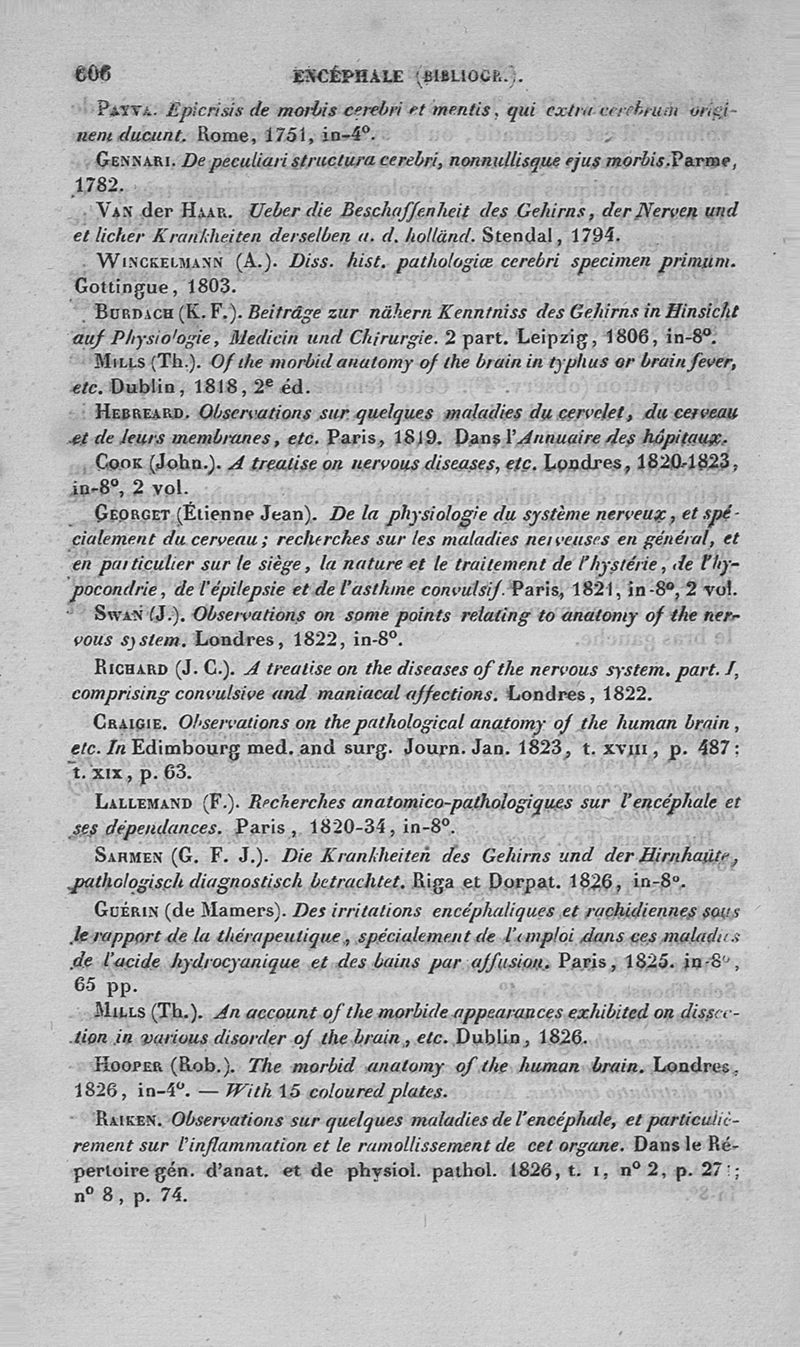 606 ENCÉPHALE (BIBLIOGR.).
PAYVA. Epicrisis de morbis cerebri et mentis, qui extra cerebrum origi-
nem ducunt. Rome, 1751, in-4°.
GENNARI. De peculiari structura cerebri, nonnullisque ejus morbis. Parme,
1782.
VAN der HAAR. Ueber die Beschaffenheit des Gehirns, der Nerven und
et licher Krankheiten derselben a. d. holländ. Stendal, 1794.
WINCKELMANN (A.). Diss. hist. pathologiæ cerebri specimen primum.
Gottingue, 1803.
BURDACH (K. F.). Beiträge zur nähern Kenntniss des Gehirns in Hinsicht
auf Physiologie, Medicin und Chirurgie. 2 part. Leipzig, 1806, in-8°.
MILLS (Th.). Of the morbid anatomy of the brain in typhus or brain fever,
etc. Dublin, 1818, 2e éd.
HEBREARD. Observations sur quelques maladies du cervelet, du cerveau
et de leurs membranes, etc. Paris, 1819. Dans l'Annuaire des hôpitaux.
COOK (John.). A treatise on nervous diseases, etc. Londres, 1820-1823,
in-8°, 2 vol.
GEORGET (Étienne Jean). De la physiologie du système nerveux, et spé-
cialement du cerveau; recherches sur les maladies nerveuses en général, et
en particulier sur le siège, la nature et le traitement de l'hystérie, de l'hy-
pocondrie, de l'épilepsie et de l'asthme convulsif. Paris, 1821, in-8°, 2 vol.
SWAN (J.). Observations on some points relating to anatomy of the ner-
vous system. Londres, 1822, in-8°.
RICHARD (J. C.). A treatise on the diseases of the nervous system. part. I,
comprising convulsive and maniacal affections. Londres, 1822.
CRAIGIE. Observations on the pathological anatomy of the human brain,
etc. In Edimbourg med. and surg. Journ. Jan. 1823, t. XVIII, p. 487;
t. XIX, p. 63.
LALLEMAND (F.). Recherches anatomico-pathologiques sur l'encéphale et
ses dépendances. Paris, 1820-34, in-8°.
SARMEN (G. F. J.). Die Krankheiten des Gehirns und der Hirnhaüte,
pathologisch diagnostisch betrachtet. Riga et Dorpat. 1826, in-8°.
GUÉRIN (de Mamers). Des irritations encéphaliques et rachidiennes sous
le rapport de la thérapeutique, spécialement de l'emploi dans ces maladies
de l'acide hydrocyanique et des bains par affusion. Paris, 1825. in-8°,
65 pp.
MILLS (Th.). An account of the morbide appearances exhibited on dissec-
tion in various disorder of the brain, etc. Dublin, 1826.
HOOPER (Rob.). The morbid anatomy of the human brain. Londres,
1826, in-4°. — With 15 coloured plates.
RAIKEN. Observations sur quelques maladies de l'encéphale, et particuliè-
rement sur l'inflammation et le ramollissement de cet organe. Dans le Ré-
pertoire gén. d'anat. et de physiol. pathol. 1826, t. I, n° 2, p.
n° 8, p. 74.